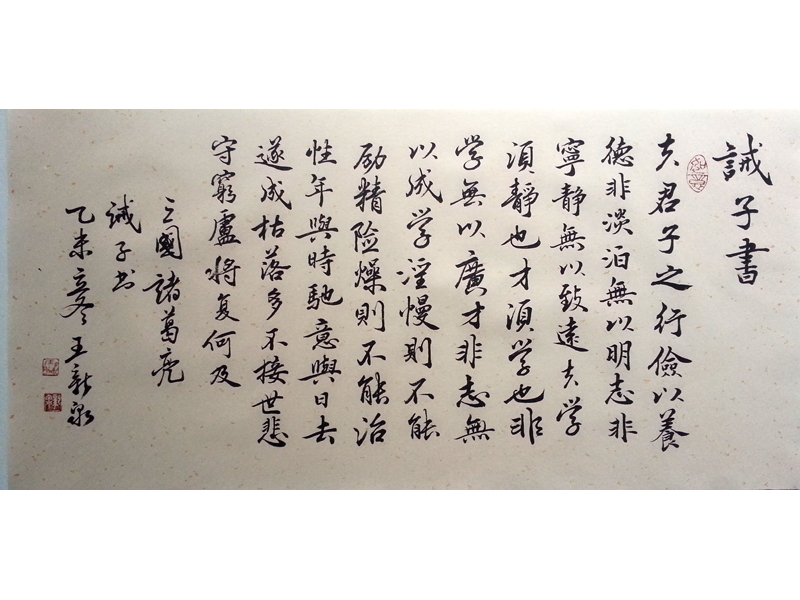 誡子書
夫君子之行儉以養
德非淡泊無以明志非
寧靜無以致遠夫学
須靜也才須学也非
学無以廣才非志無
以成学淫慢則不能
励精险燥則不能治
性年與時馳意與日去
遂成枯落多不接世悲
守窮廬将复何及
三國諸葛亮
誡子书
乙未立冬王新泉